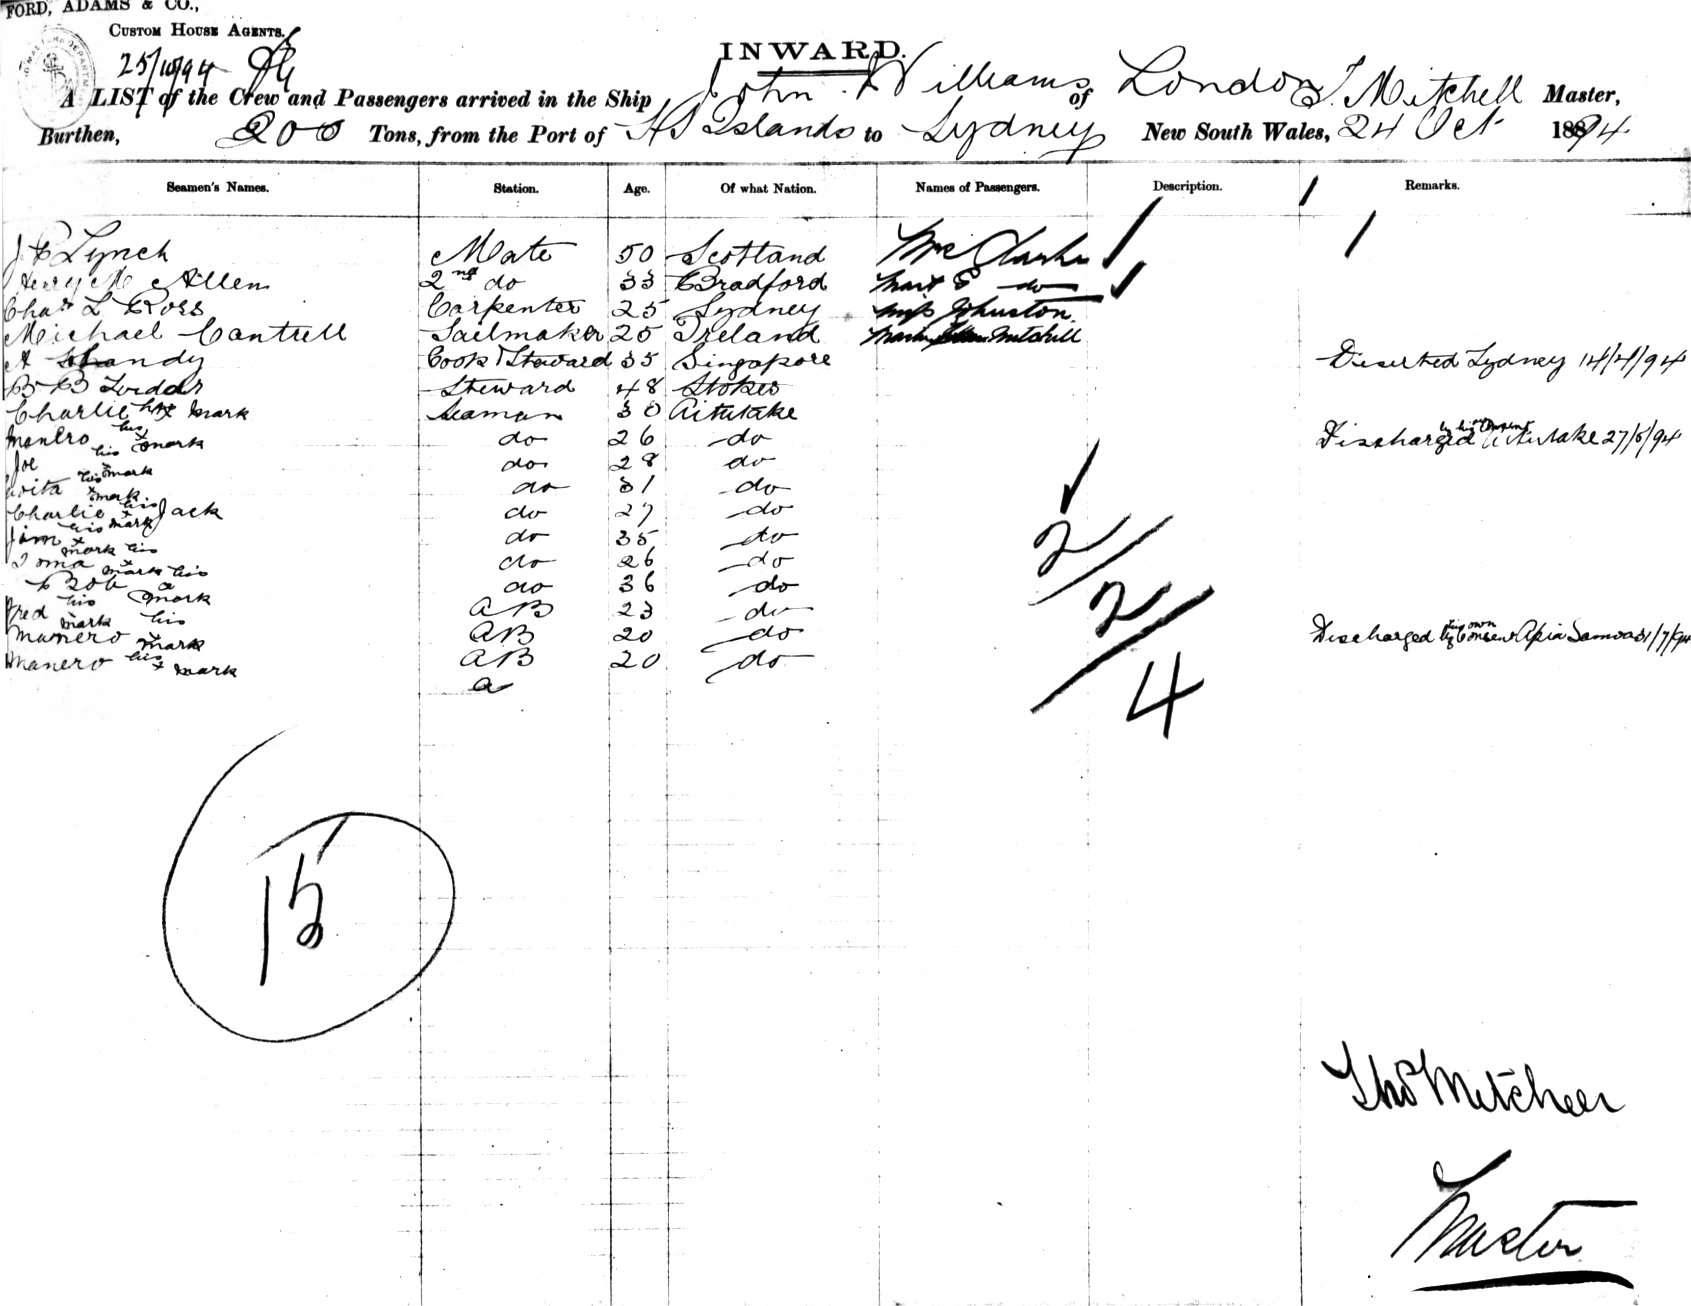 FORD, ADAMS & CO.,
CUSTOM HOUSE AGENTS.
25/10/94
INWARD.
A LIST of the Crew and Passengers arrived in the Ship John Williams of London T. Mitchell Master,
Burthen, 200 Tons, from the Port of S S Islands to Sydney New South Wales, 24 Oct 1894
Seamen's Names. Station. Age. Of what Nation. Names of Passengers. Description. Remarks.
Lynch Mate 50 Scotland Mrs Clarke
Henry M Allen 2nd do 33 Bradford E do
Chas L Ross Carpenter 25 Sydney Miss Johnston
Michael Cantrell Sailmaker 25 Ireland Mitchell
A Shandy Cook & Steward 35 Singapore Diserted Sydney 14/4/94
B B Steward 48 Stokes
Charlie his x mark Seaman 30 Aitutake
Manero his x mark do 26 do Discharged by his own consent Aitutake 27/5/94
Joe his x mark do 28 do
his x mark do 31 do
Charlie his x mark Jack do 27 do
Jim his x mark do 35 do
Toma his x mark do 26 do
Bob his x mark do 36 do
Fred his x mark AB 23 do
Manero his x mark AB 20 do Discharged by his own consent Apia Samoa 31/7/94
Manero his x mark AB 20 do
a
2/
2/
4
15
Thos Mitchell
Master